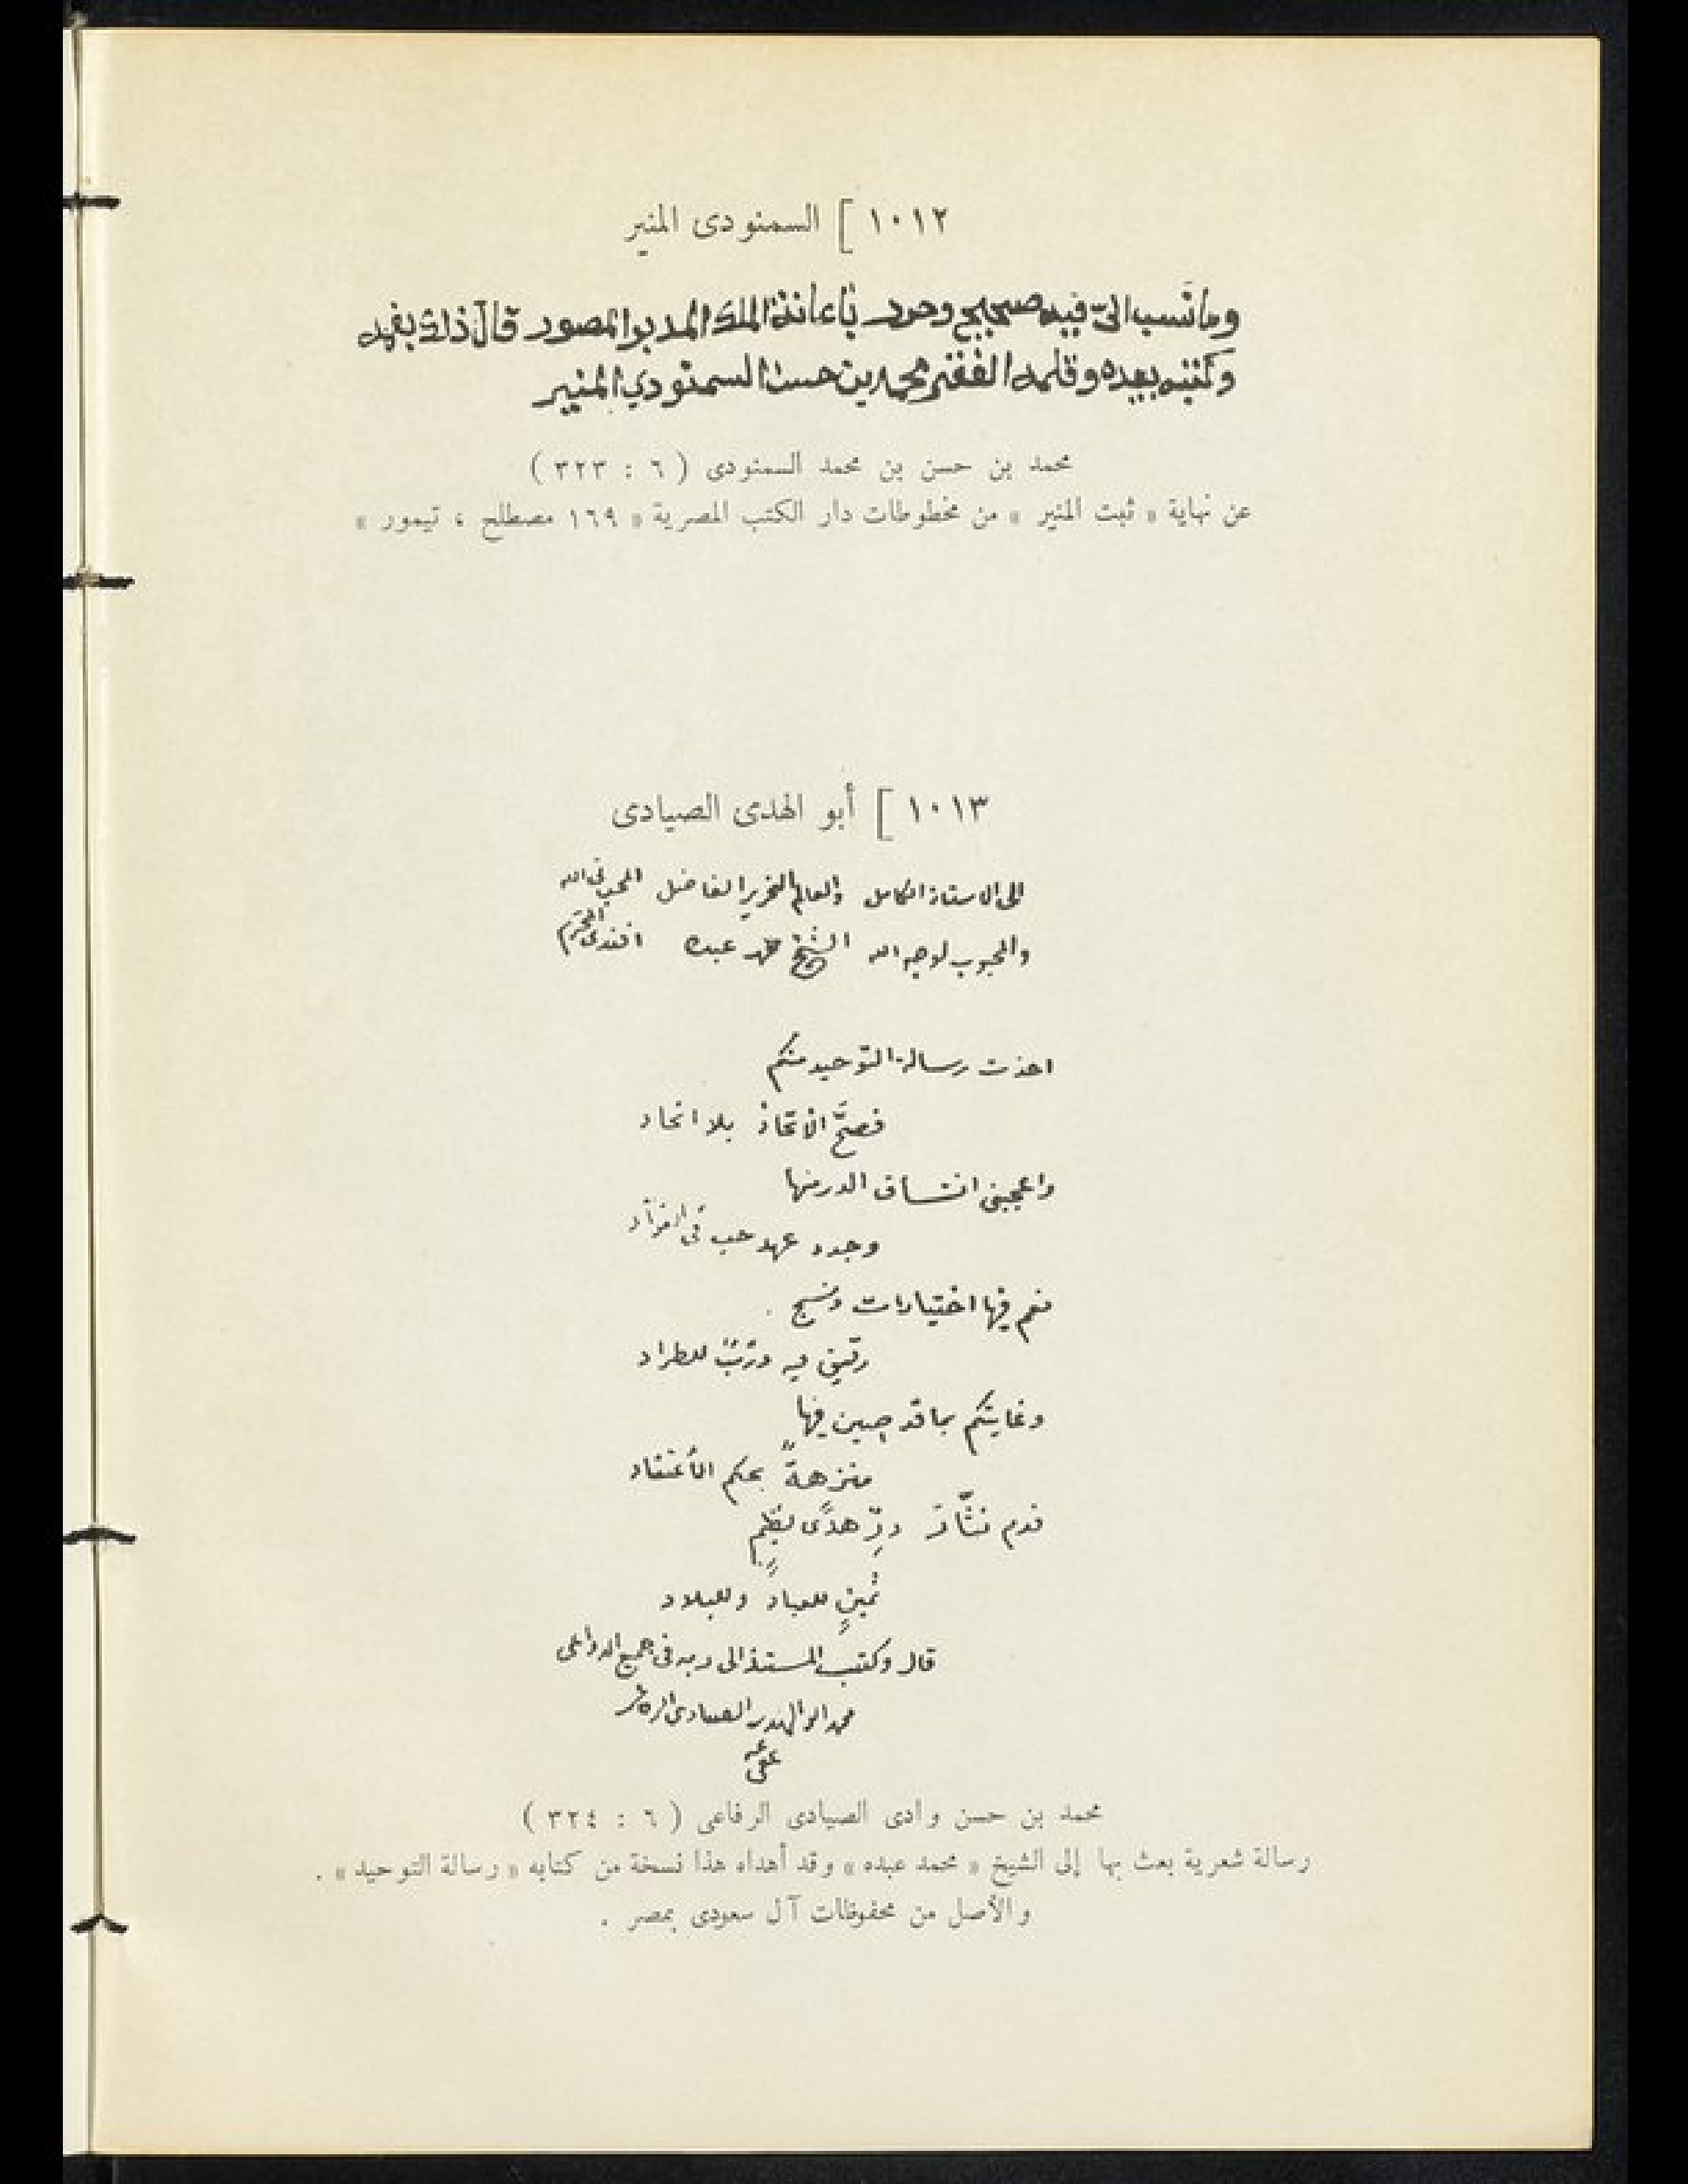 ١٠١٢ [ السمنودى المنير
وما نسب الىّ فيه صحيح وحرر باعانة الملك المدبر المصور قال ذلك بفمه
وكتبه بيده وقلمه الفقير محمد بن حسن السمنودي المنير
محمد بن حسن بن محمد السمنودى ( ٦ : ٣٢٣ )
عن نهاية « ثبت المنير » من مخطوطات دار الكتب المصرية « ١٦٩ مصطلح ، تيمور »
١٠١٣ [ أبو الهدى الصيادى
الى الاستاذ الكامل والعالم النحرير الفاضل المحب فى الله
والمحبوب لوجه الله الشيخ محمد عبده افندى المحترم
اخذت رسالة التوحيد منكم
فصحّ الأتحاذ بلا اتحاد
واعجبنى اتساق الدر منها
وجدد عهد حب فى الفؤاد
نعم فيها اختيارات ونسج
رقيق فيه للطراد
وغايتكم بما قد فيها
منزهةٌ بحكم الأعتقاد
فدم نثّار درّ هدًى نظيمٍ
ثمينٍ للعباد وللبلاد
قال وكتب الى ربه فى جميع
محمد ابو الهدى الصيادى
عفى عنه
محمد بن حسن وادى الصيادى الرفاعى ( ٦ : ٣٢٤ )
رسالة شعرية بعث بها إلى الشيخ « محمد عبده » وقد أهداه هذا نسخة من كتابه « رسالة التوحيد » .
والأصل من محفوظات آل سعودى بمصر .